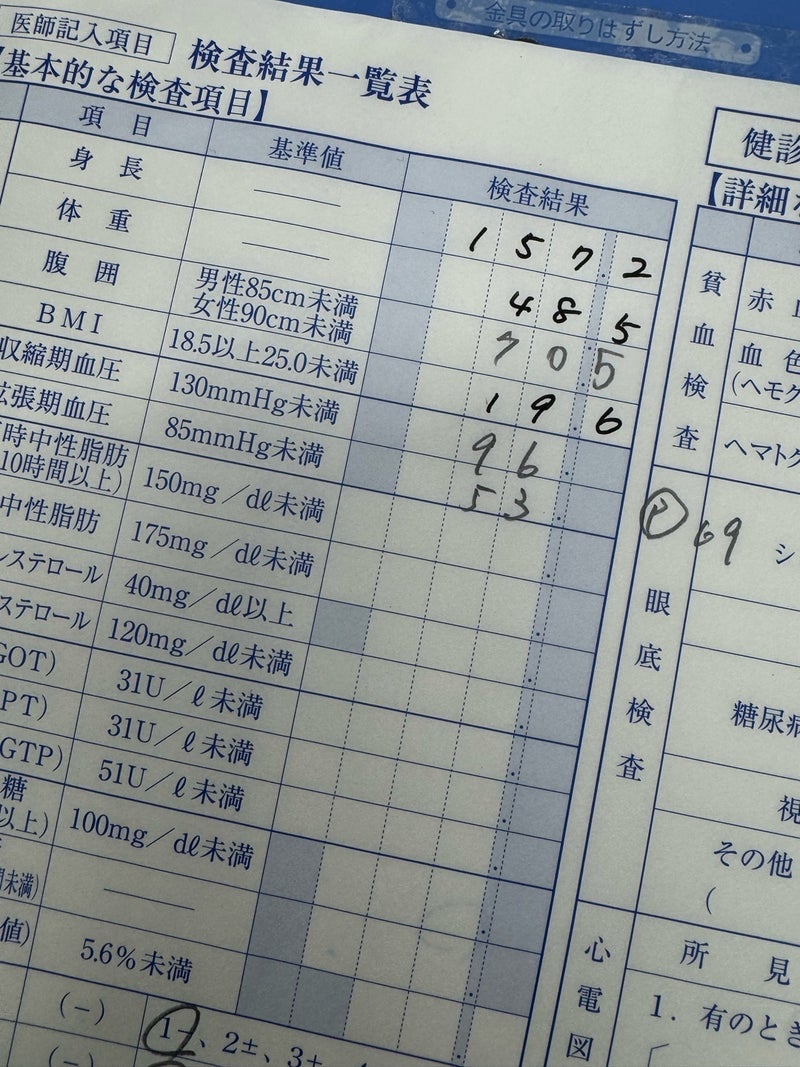 金具の取りはずし方法
医師記入項目 検査結果一覧表
基本的な検査項目】
項目 基準値 検査結果
身長 ―― 157.2
体重 ―― 48.5
腹囲 男性85cm未満 女性90cm未満 70.5
BMI 18.5以上25.0未満 19.6
収縮期血圧 130mmHg未満 96
拡張期血圧 85mmHg未満 53
時中性脂肪 10時間以上) 150mg/dℓ未満
中性脂肪 175mg/dℓ未満
ステロール 40mg/dℓ以上
ステロール 120mg/dℓ未満
GOT) 31U/ℓ未満
PT) 31U/ℓ未満
GTP) 51U/ℓ未満
糖 以上) 100mg/dℓ未満
未満) ――
値) 5.6%未満
(-) 1-、2±、3+
(-)
健診
【詳細
貧血検査
赤
血色
(ヘモグ
ヘマトク
P 69
シ
眼底検査
糖尿病
視
その他
(
心電図
所見
1. 有のとき